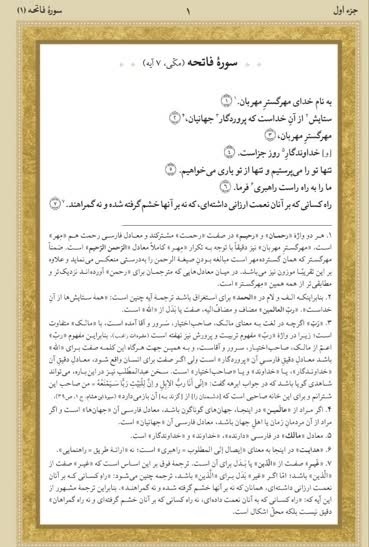 جزء اول
۱
سورهٔ فاتحه (۱)
سورهٔ فاتحه (مکّی، ۷ آیه)
به نام خدای مهرگستر مهربان.۱ ۱
ستایش۲ از آنِ خداست که پروردگار۳ جهانیان،۴ ۲
مهرگستر مهربان، ۳
[و] خداوندگار۵ روز جزاست. ۴
تنها تو را می‌پرستیم و تنها از تو یاری می‌خواهیم. ۵
ما را به راه راست راهبری۶ فرما. ۶
راه کسانی که بر آنان نعمت ارزانی داشته‌ای، که نه بر آنها خشم گرفته شده و نه گمراهند.۷ ۷
۱. هر دو واژهٔ «رحمان» و «رحیم» در صفت «رحمت» مشترکند و معادل فارسی رحمت هم «مهر»
است. «مهرگستر مهربان» نیز دقیقاً با توجه به تکرار «مهر» کاملاً معادل «الرّحمن الرّحیم» است. ضمناً
مهرگستر که همان گسترده‌مهر است مبالغه بودن صیغهٔ الرحمن را به‌درستی منعکس می‌نماید و علاوه
بر این تقریباً موزون نیز می‌باشد. در میان معادل‌هایی که مترجمان برای «رحمن» آورده‌اند نزدیک‌تر و
مطابقی‌تر از همه همین «مهرگستر» است.
۲. بنابراینکه الف و لام در «الحمد» برای استغراق باشد ترجمهٔ آیه چنین است: «همهٔ ستایش‌ها از آنِ
خداست». «ربّ العالمین» مضاف و مضاف‌الیه، صفت یا بَدَل از «الله» است.
۳. «رَبّ» اگرچه در لغت به معنای مالک، صاحب‌اختیار، سَروَر و آقا آمده است، با «مالک» متفاوت
است؛ زیرا در واژهٔ «ربّ» مفهوم تربیت و پرورش نیز نهفته است. بنابراین مفهوم «ربّ»
اعمّ از مالک، صاحب‌اختیار، سرور و آقاست، و به همین جهت هرگاه این کلمه صفت برای «الله»
باشد معادل دقیق فارسی آن «پروردگار» است ولی اگر صفت برای انسان واقع شود، معادل دقیق آن
«خداوندگار»، یا «خداوند» و یا «صاحب‌اختیار» است. سخن عبدالمطّلب نیز در این‌باره، می‌تواند
شاهدی گویا باشد که در جواب ابرهه گفت: «إنّی أنَا رَبُّ الإبِلِ وَ إنَّ لِلْبَیْتِ رَبّاً سَیَمْنَعُهُ = من صاحب این
شترانم و برای این خانه صاحبی است که [دشمنان را] از [گزند به] آن بازمی‌دارد»
۴. اگر مراد از «عالَمین» در اینجا، جهان‌های گوناگون باشد، معادل فارسی آن «جهان‌ها» است و اگر
مراد از آن مردمان زمان یا اهل جهان باشد، معادل فارسی آن «جهانیان» است.
۵. معادل «مالک» در فارسی «دارنده»، «خداوند» و «خداوندگار» است.
۶. «هدایت» در اینجا به معنای «إیصال إلی المطلوب = راهبری» است؛ نه «ارائهٔ طریق = راهنمایی».
۷. «غیر» صفت از «الّذین» یا بَدَل برای آن است. ترجمهٔ فوق بر این اساس است که «غیر» صفت از
«الّذین» باشد؛ امّا اگر «غیر» بَدَل برای «الّذین» باشد، ترجمه چنین می‌شود: «راه کسانی که بر آنان
نعمت ارزانی داشته‌ای، همانان که نه بر آنها خشم گرفته شده و نه گمراهند». بنابراین ترجمهٔ مشهور از
این آیه که: «راه کسانی که به آنان نعمت داده‌ای، نه راه کسانی که بر آنان خشم گرفته‌ای و نه راه گمراهان»
دقیق نیست بلکه محلّ اشکال است.